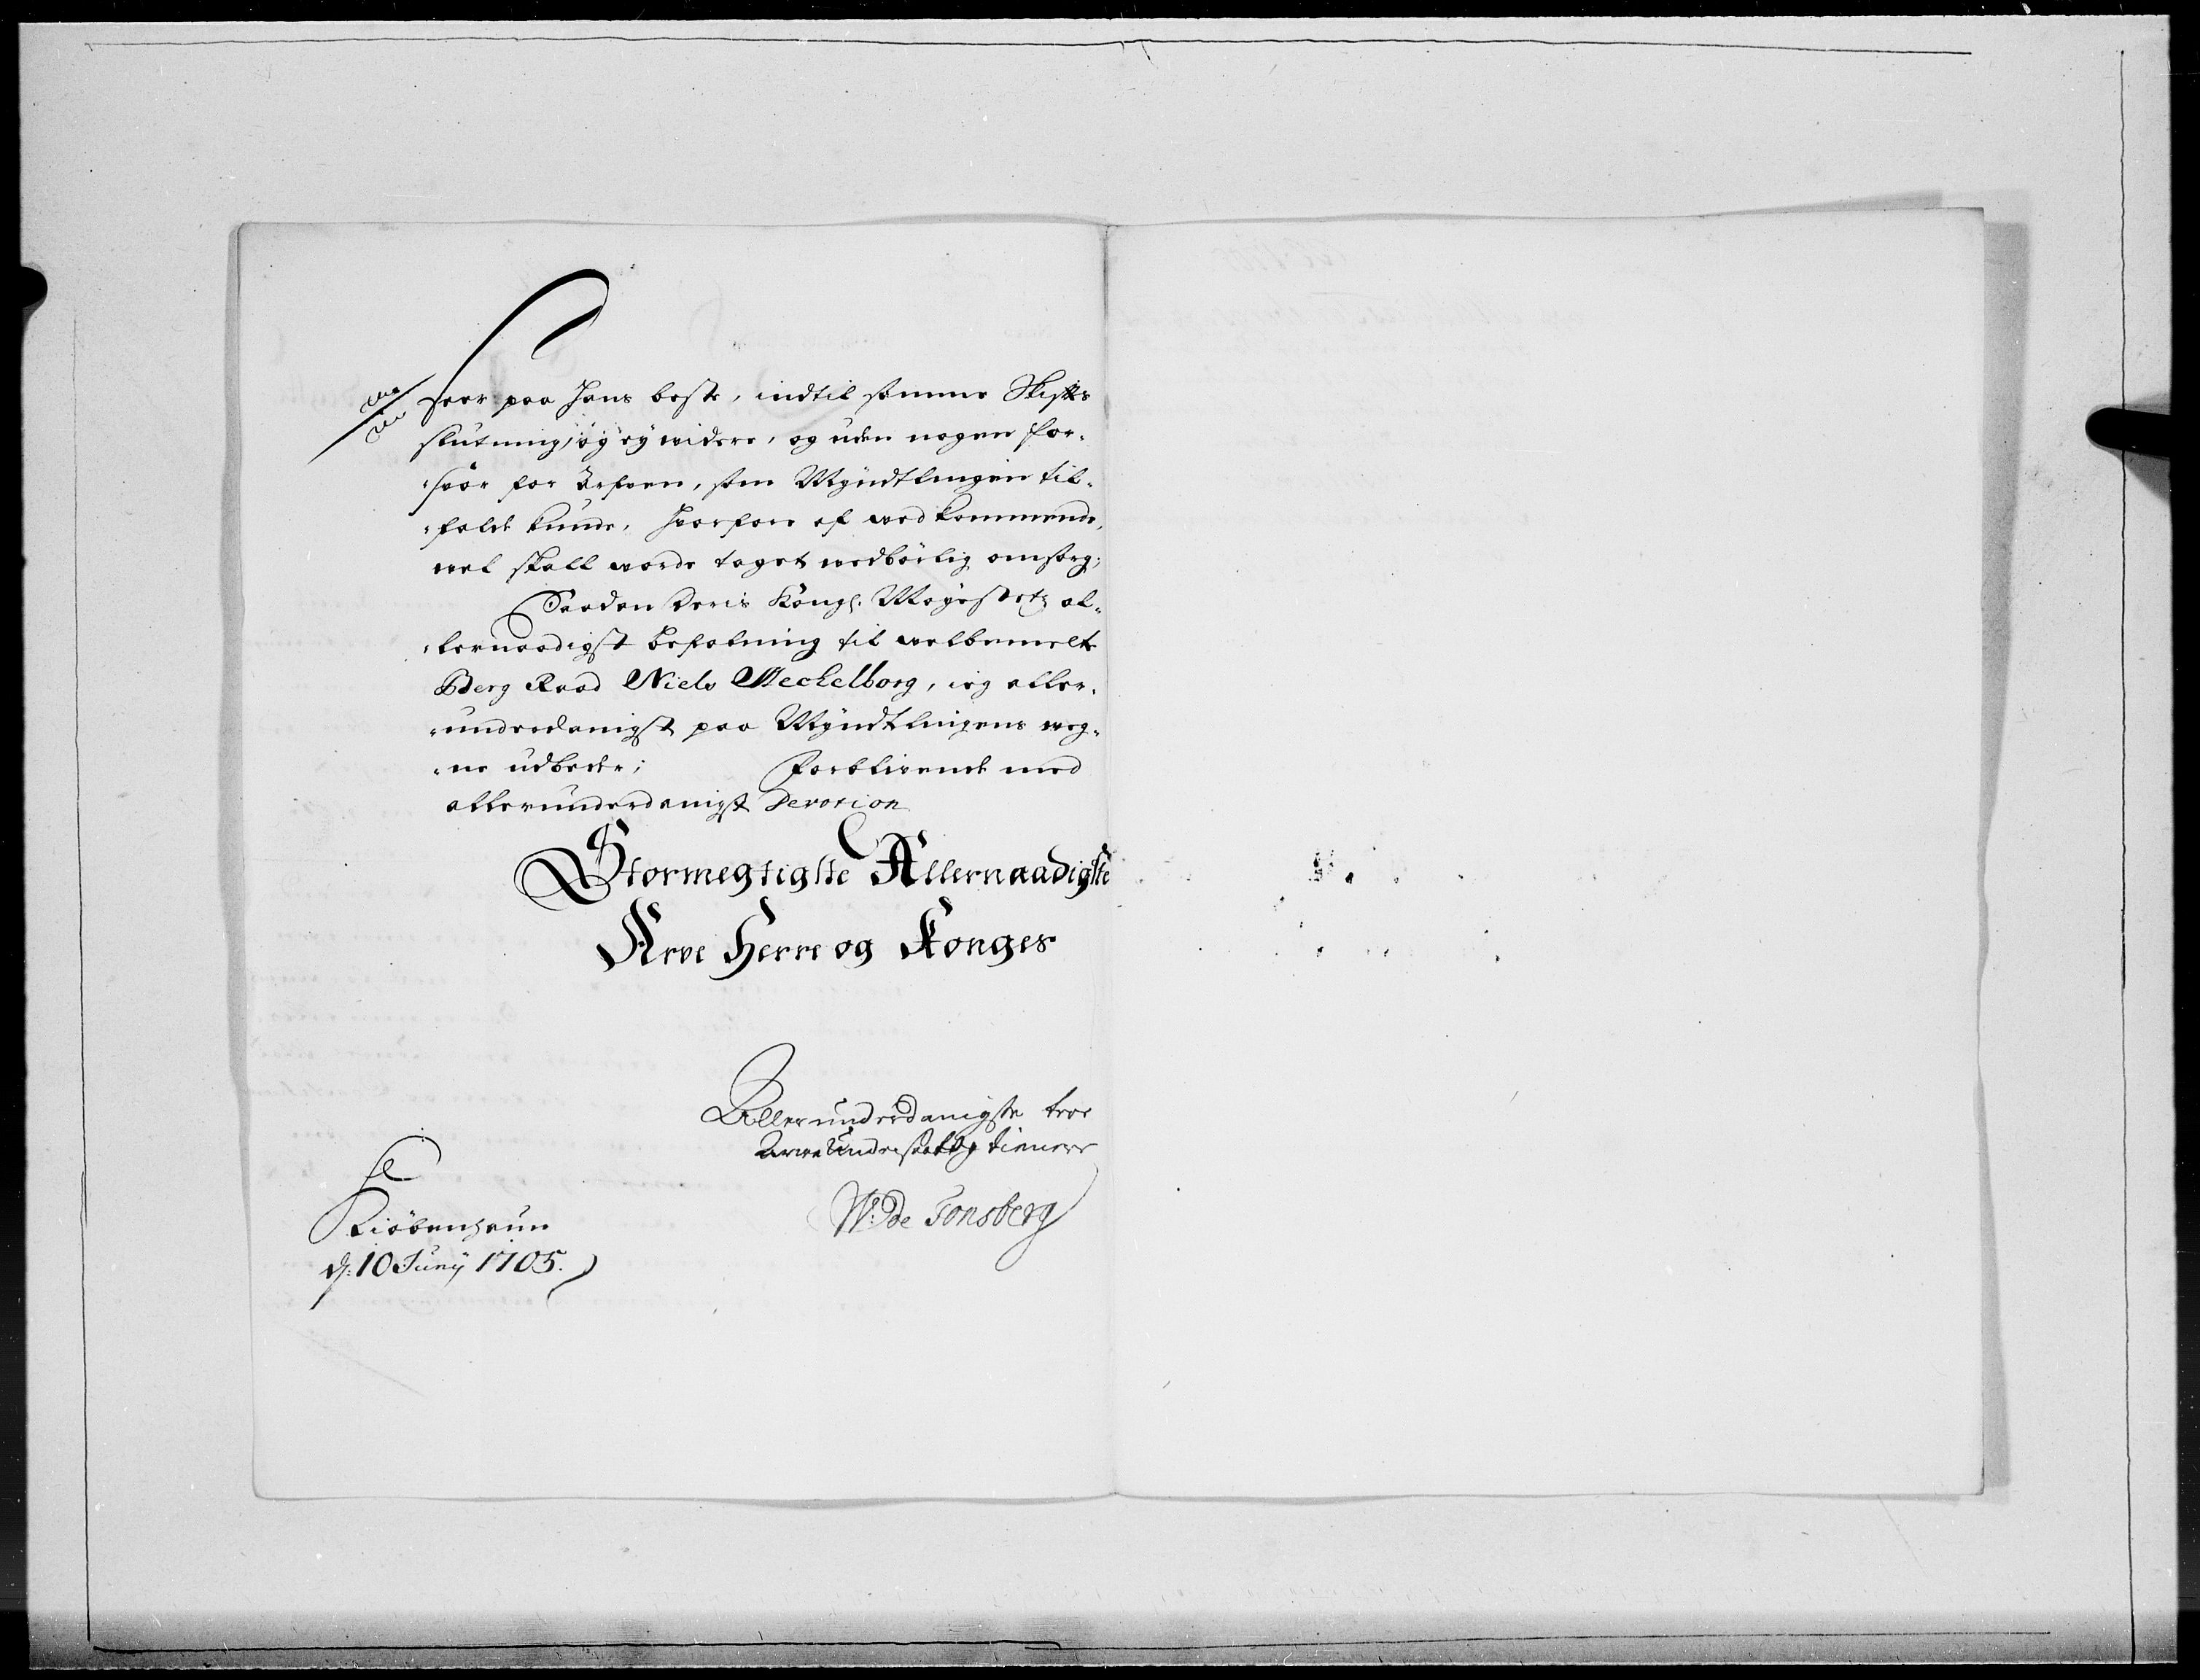 seer paa Hans beste, indtil samme Skiftes
slutning, og ey widere, og uden nogen for-
-soor for Arfven, som Myndtlingen til-
-falde kunde, Hvorfore af wedkommende,
wel skall worde taget nedbörlig omsorg;
Saadan Deris Kongl: Mayestets al-
-lernaadigst befalning til welbemelte
Berg Raad Niels Mechelborg, ieg aller-
-underdanigst paa Myndtlingens weg-
-ne udbeder; Forblifvende med
allerunderdanigst Devotion
Stormegtigste Allernaadigste
Arve Herre og Konges
Allerunderdanigste troe
Arve Undersaatt og tienere
W: de Tonsberg
Kiöbenhaun
d: 10 Juny 1705.